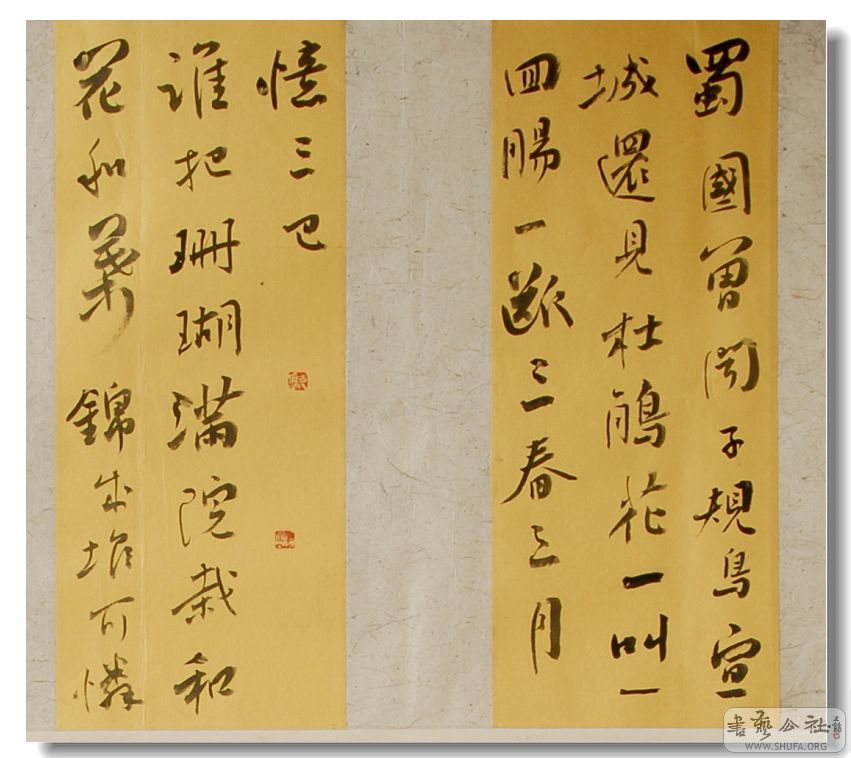 蜀國曾聞子規鳥宣
城還見杜鵑花一叫一
囬腸一斷三春三月
憶三巴
誰把珊瑚滿院栽和
花和葉錦成堆可憐
書藝公社
WWW.SHUFA.ORG